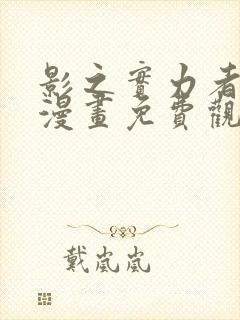 影之實力者
漫畫免費觀
戴嵐嵐